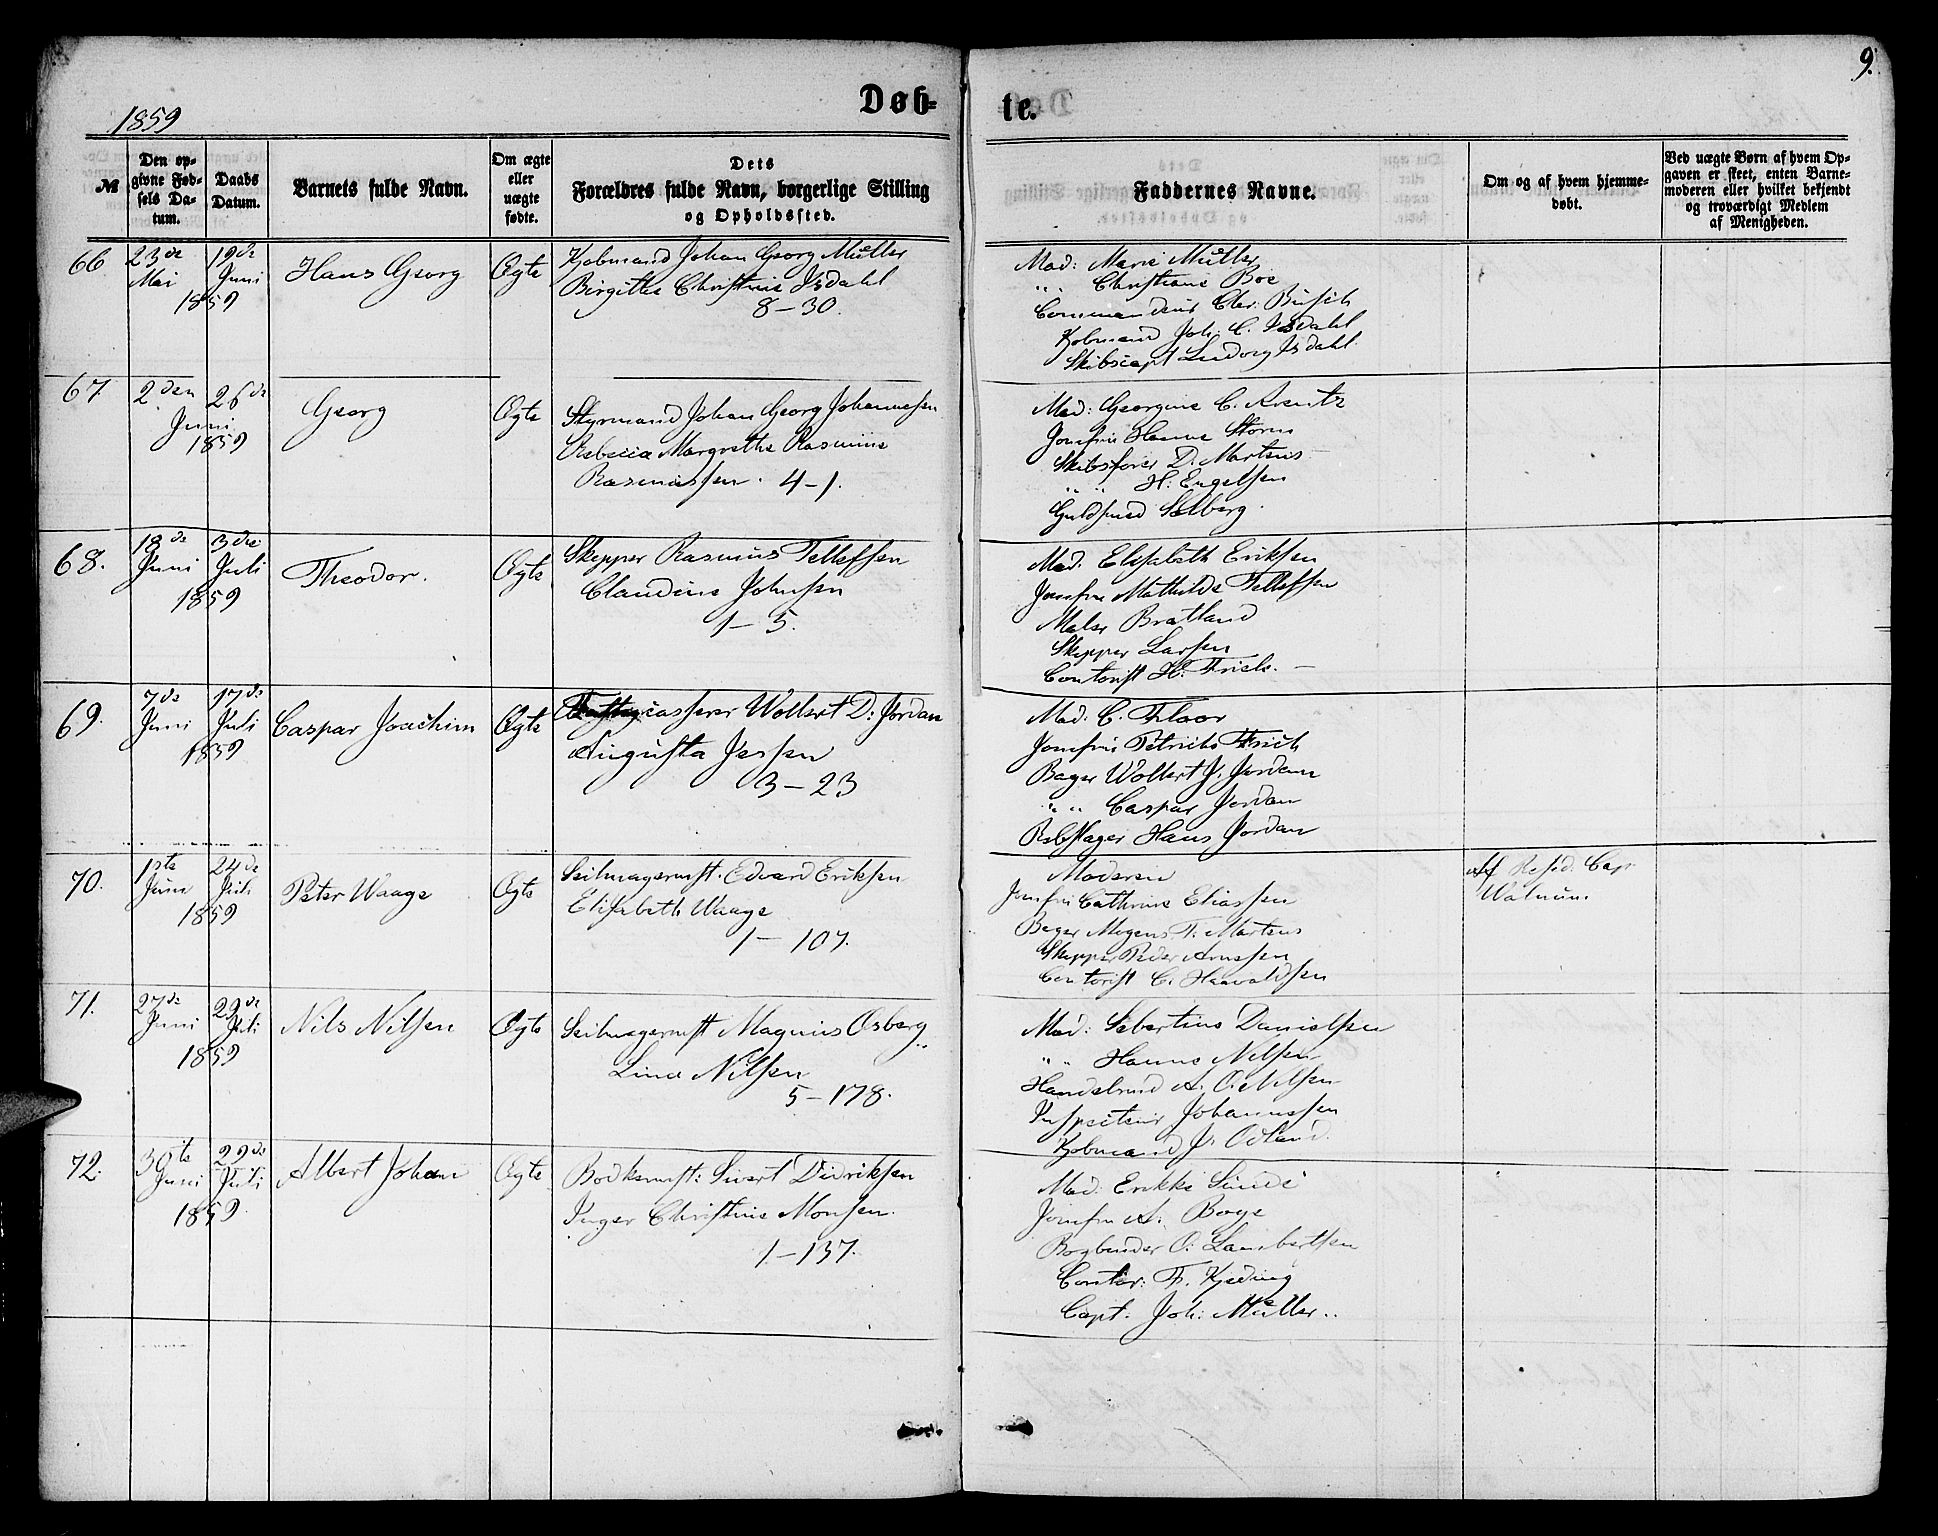 1859
Døb-
te.
9.
№
Den op-
givne Fød-
sels Da-
tum.
Daabs
Datum.
Barnets fulde Navn.
Om ægte
eller
uægte
fødte.
Dets
Forældres fulde Navn, borgerlige Stilling
og Opholdssted.
Faddernes Navne.
Om og af hvem hjemme-
døbt.
Ved uægte Børn af hvem Op-
gaven er skeet, enten Barne-
moderen eller hvilket bekjendt
og troværdigt Medlem
af Menigheden.
66
23de
Mai
19de
Juni
1859
Hans Georg
Ægte
Kjøbmand Johan Georg Müller
Birgitte Christine Isdahl
8-30.
Mad: Marie Müller
" " Christiane Boe
Commandeur Chr: Büsch
Kjøbmand Joh: C. Isdahl
Skibscapt Ludvig Isdahl
67
2den
Juni
26de
1859
Georg
Ægte
Styrmand Johan Georg Johannesen
Rebecca Margrethe Rasmine
Rasmussen. 4-1.
Mad: Georgine C. Arentz
Jomfru Hanne Storm
Skibsfører D. Martens
" " H: Engelsen
Guldsmed Selberg.
68.
18de
Juni
3die
Juli
1859
Theodor.
Ægte
Skipper Rasmus Tellefsen
Claudine Johnsen
1-5.
Mad. Elisabeth Eriksen
Jomfru Mathilde Tellefsen
Maler Bratland
Skipper Larsen
Contorist H. Friele.
69.
7de
Juni
17de
Juli
1859
Caspar Joachim
Ægte
Wollert D: Jordan
Augusta Jessen
3-23
Mad: C. Floor
Jomfru Petriche Friele
Bager Wollert J. Jordan
" " Caspar Jordan
Rebslager Hans Jordan
70.
1ste
Juni
24de
Juli
1859
Peter Waage
Ægte
Seilmagermst. Edvard Eriksen
Elisabeth Waage
1-107.
Moderen
Jomfru Cathrine Eliassen
Bager Mogens T. Martens
Skipper Peder Arnesen
Contorist C. Haavaldsen
Af Resid: Cap:
Walnum.
71.
27de
Juni
29de
Juli
1859
Nils Nilsen
Ægte
Seilmagermst Magnus Osberg
Lina Nilsen
5-178.
Mad: Sebertine Danielsen
" " Hanne Nilsen
Handelsmd A. O. Nilsen
Inspecteur Johannessen
Kjøbmand J. Odland.
72.
30te
Juni
29de
Juli
1859
Albert Johan
Ægte
Bødkermst: Sivert Didriksen
Inger Christine Monsen.
1-137.
Mad: Erikke Sunde
Jomfru A: Boge
Bogbinder O: Lambertsen
Contor: Fr. Kjeding
Capt: Joh: Müller..